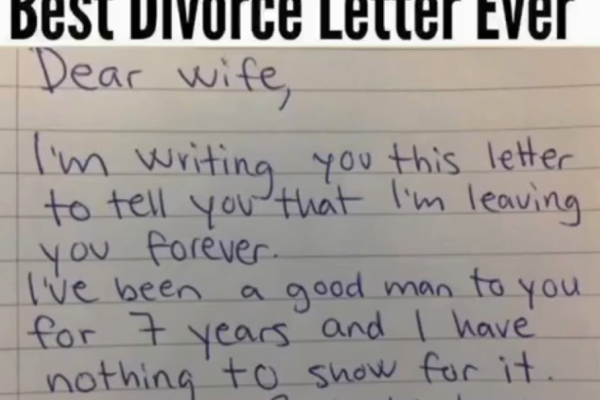 Best Divorce Letter Ever
Dear wife,
I'm writing you this letter
to tell you that I'm leaving
you forever.
I've been a good man to you
for 7 years and I have
nothing to show for it.